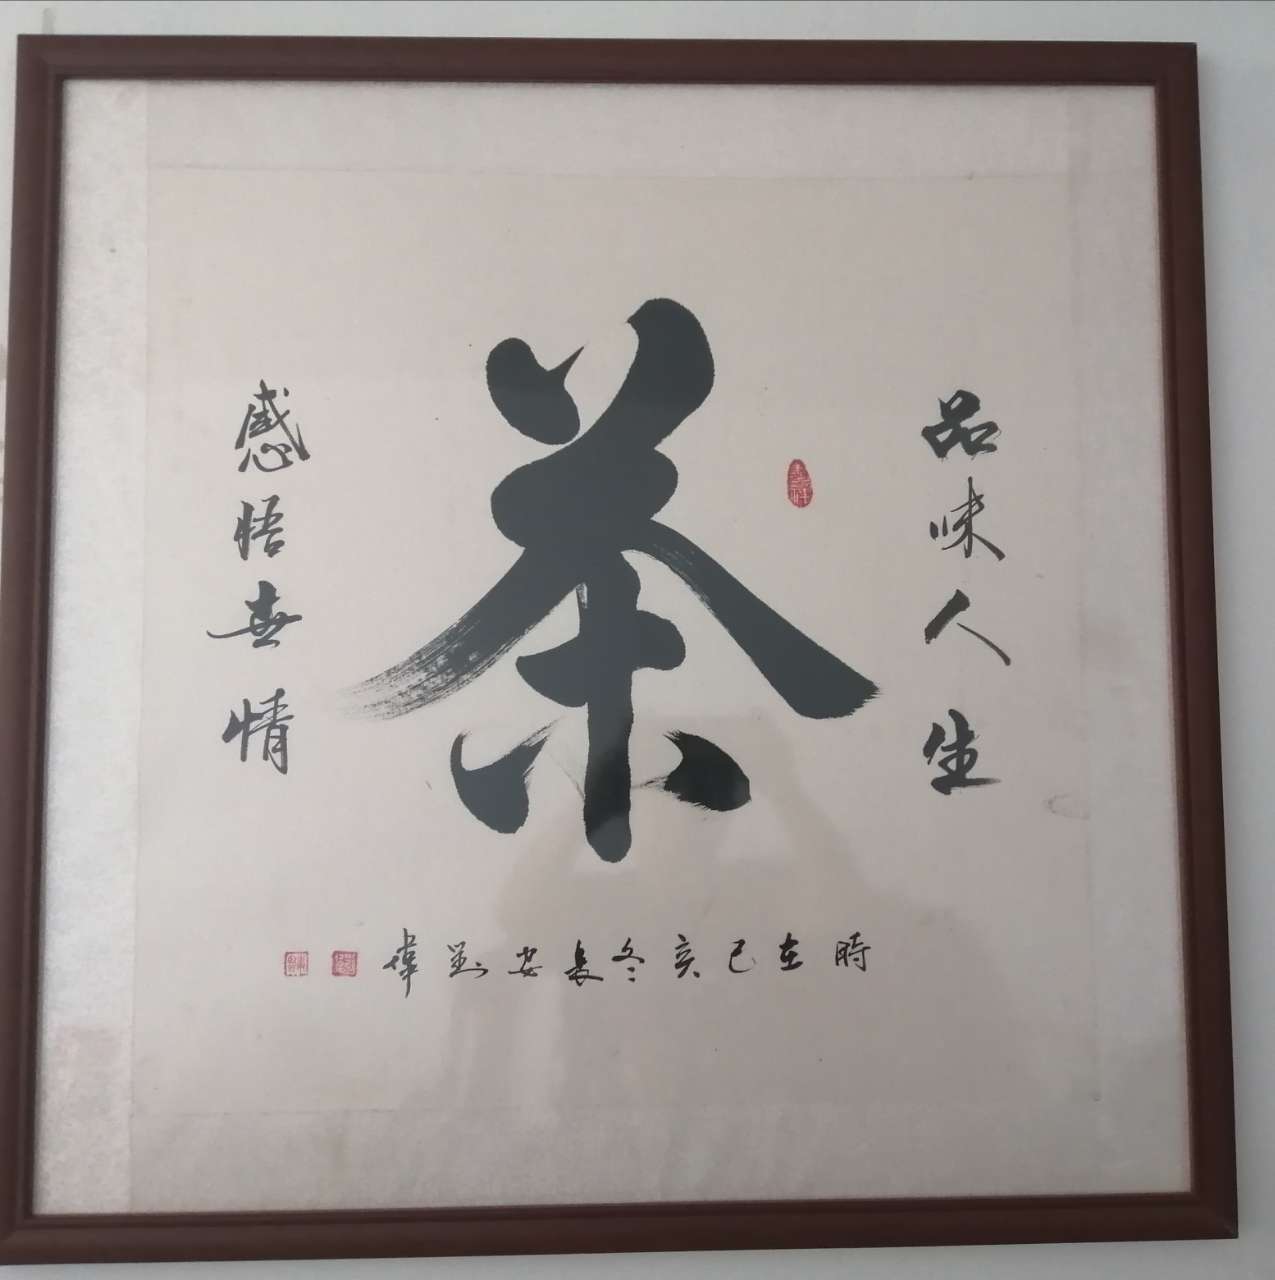 品味人生
茶
感悟情
時在己亥冬長安劉偉